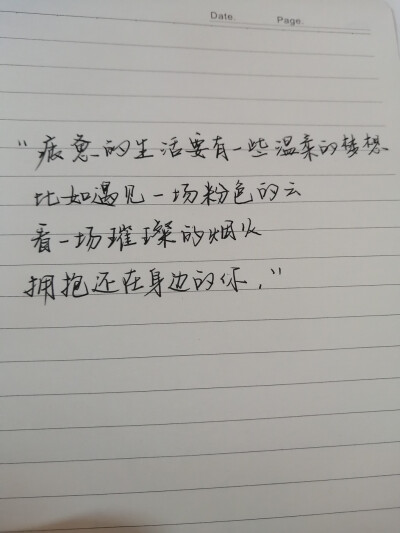 Date. Page.
“疲惫的生活要有一些温柔的梦想
比如遇见一场粉色的云
看一场璀璨的烟火
拥抱还在身边的你.”